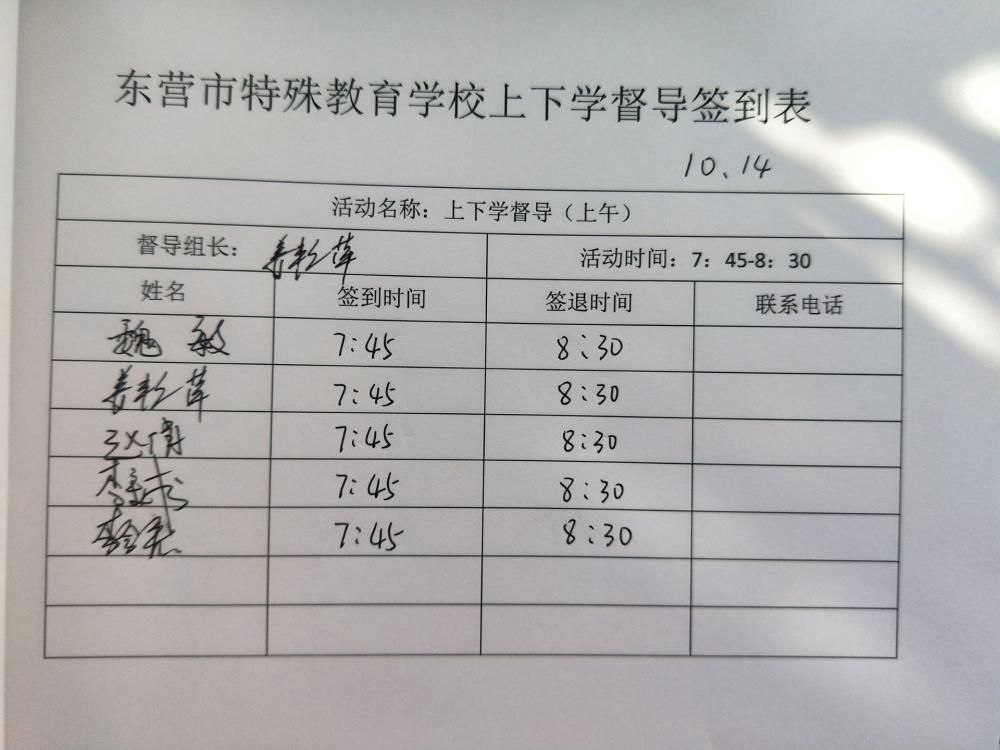 东营市特殊教育学校上下学督导签到表
10、14
活动名称：上下学督导（上午）
督导组长： 姜彩萍 活动时间：7：45-8：30
姓名 签到时间 签退时间 联系电话
魏敏 7:45 8:30
姜彩萍 7:45 8:30
7:45 8:30
7:45 8:30
7:45 8:30